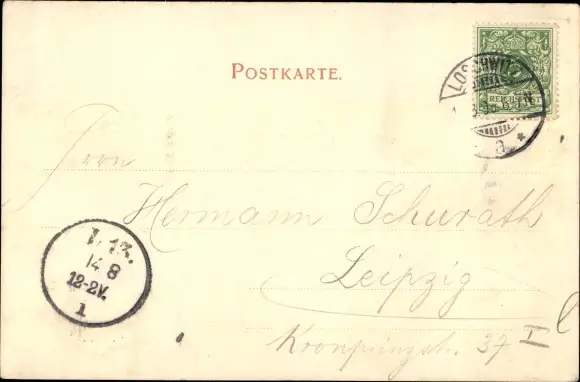 POSTKARTE.
LOSCHWITZ
REICHSPOST
a *
Herrn
Hermann Schurath
Leipzig
Kronprinzstr. 37 I
L. 13.
14 8
12-2V.
1